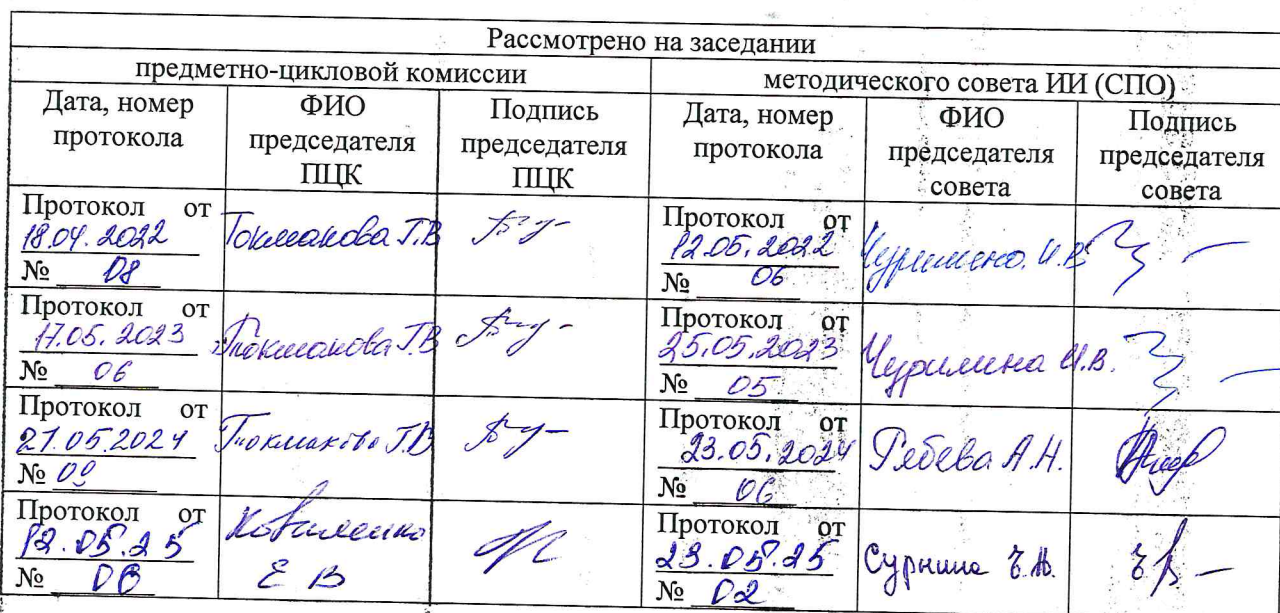 Рассмотрено на заседании
предметно-цикловой комиссии методического совета ИИ (СПО)
Дата, номер протокола ФИО председателя ПЦК Подпись председателя ПЦК Дата, номер протокола ФИО председателя совета Подпись председателя совета
Протокол от
18.04.2022
№ 08
Токмакова Т.В
Протокол от
12.05.2022
№ 06
Чурилина И.В
Протокол от
17.05.2023
№ 06
Токмакова Т.В
Протокол от
25.05.2023
№ 05
Чурилина И.В.
Протокол от
21.05.2024
№
Токмакова Т.В
Протокол от
23.05.2024
№ 06
Рябева А.Н.
Протокол от
12.05.25
№
Е В
Протокол от
23.05.25
№ 02
Сурнина